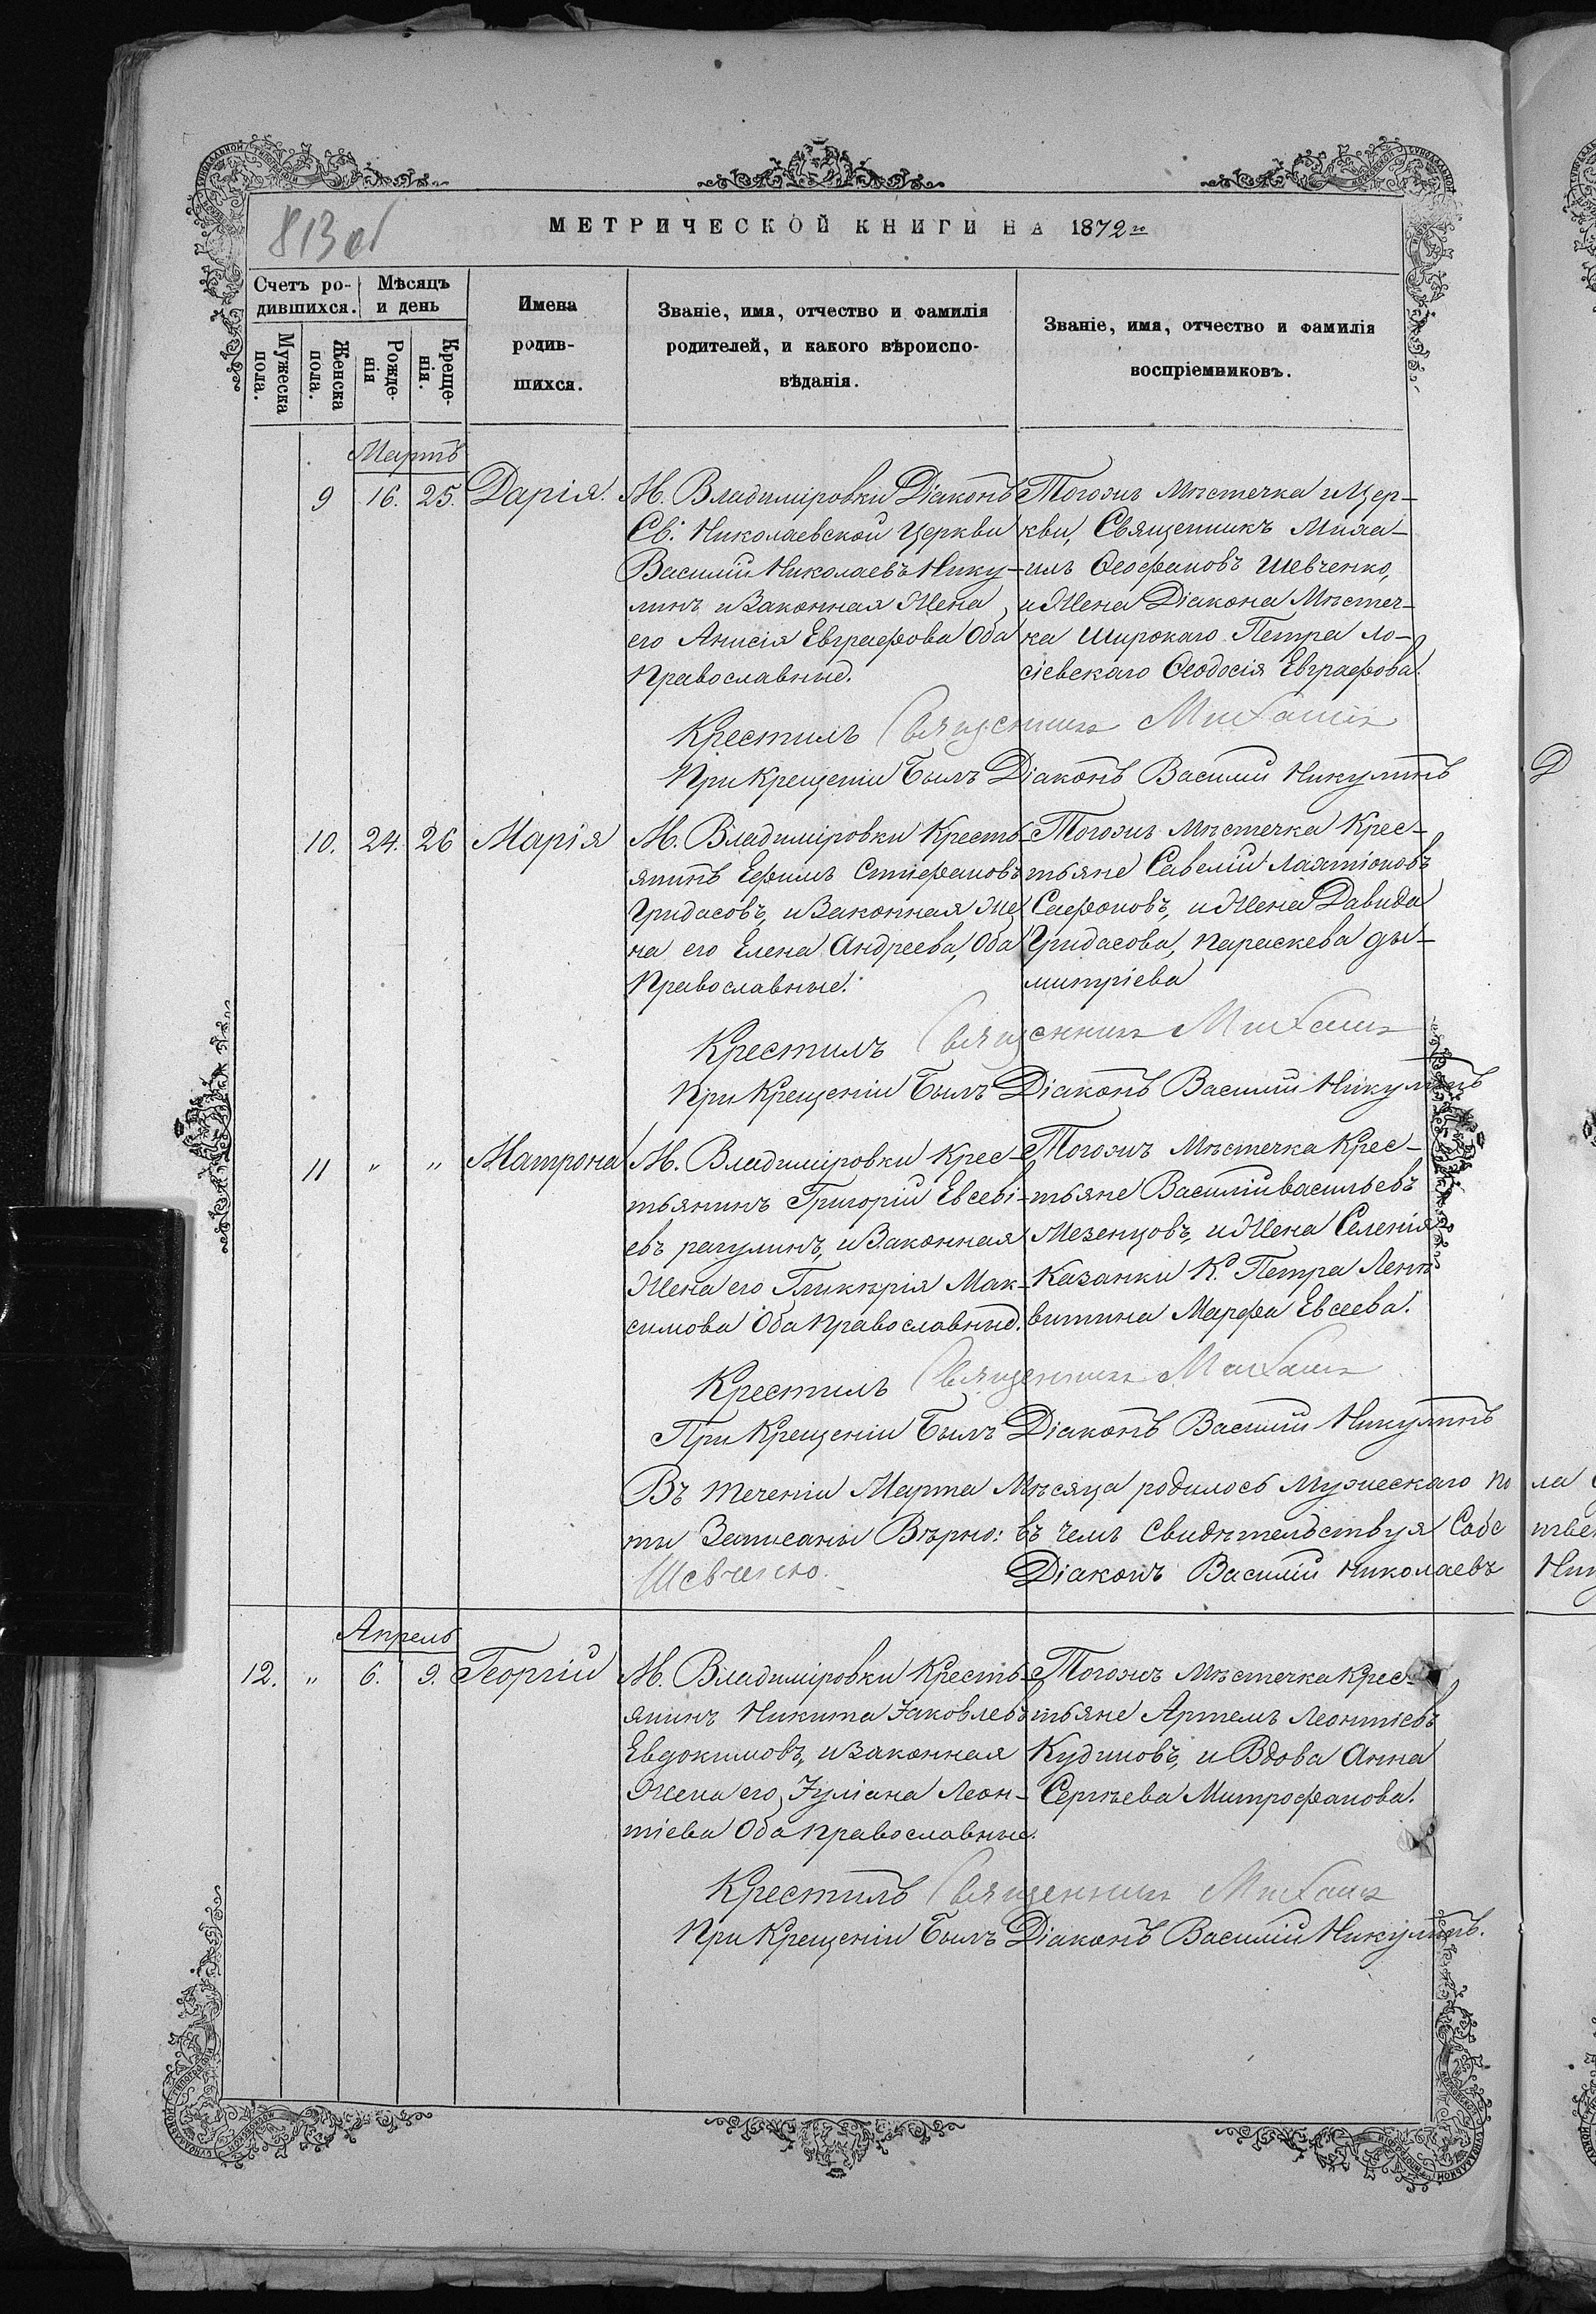 813 об
МЕТРИЧЕСКОЙ КНИГИ НА 1872 го
Счетъ ро-
дившихся.
Мѣсяцъ
и день
Мужеска
пола.
Женска
пола.
Рожде-
нія
Креще-
нія.
Имена
родив-
шихся.
Званіе, имя, отчество и фамилія
родителей, и какого вѣроиспо-
вѣданія.
Званіе, имя, отчество и фамилія
воспріемниковъ.
Мартъ
9 16. 25. Дарія.
М. Владиміровки Діаконъ
Св. Николаевской Церкви
Василій Николаевъ Нику-
линъ и Законная Жена
его Анисія Евграфова Оба
Православные.
Тогожъ Мѣстечка и Цер-
кви, Священникъ Миха-
илъ Ѳеофановъ Шевченко,
и Жена Діакона Мѣстеч-
ка Широкаго Петра Ло-
сіевскаго Ѳеодосія Евграфова.
Крестилъ Священникъ Михаилъ
При Крещеніи Былъ Діаконъ Василій Никулинъ
10. 24. 26 Марія
М. Владиміровки Кресть-
янинъ Ефимъ Стиефановъ
Гридасовъ, и Законная Же
на его Елена Андреева, Оба
Православные.
Тогожъ Мѣстечка Крес-
тьяне Савелій Лаятіоновъ
Сафоновъ, и Жена Давида
Гридасова, Параскева Ди-
митріева
Крестилъ Священникъ Михаилъ
При Крещеніи Былъ Діаконъ Василій Никулинъ
11 " " Матрона
М. Владиміровки Крес-
тьянинъ Григорій Евсеві-
евъ рагулинъ, и Законная
Жена его Гликѣрія Мак-
симова Оба Православные.
Тогожъ Мѣстечка Крес-
тьяне Василій васильевъ
Мезенцовъ, и Жена Селенія
Казанки Кр. Петра Лени
витина Марфа Евсеева.
Крестилъ Священникъ Михаилъ
При Крещеніи Былъ Діаконъ Василій Никулинъ
Въ теченіи Марта Мѣсяца родилось Мужескаго по
ти Записаны Вѣрно: въ чемъ Свидѣтельствуя Собс
Шевченко. Діаконъ Василій Николаевъ
Апрель
12. " 6. 9. Георгій
М. Владиміровки Кресть-
янинъ Никита Іаковлевъ
Евдокимовъ, и законная
Жена его, Іуліана Леон-
тіева Оба православные.
Тогожъ Мѣстечка Крес-
тьяне Артемъ Леонтіевъ
Кудиновъ, и Вдова Анна
Сергѣева Митрофанова.
Крестилъ Священникъ Михаилъ
При Крещеніи Былъ Діаконъ Василій Никулинъ.